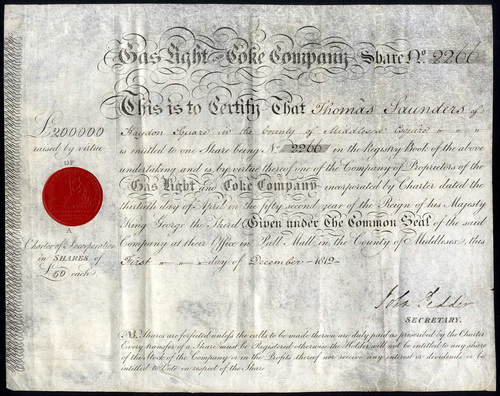 Gas Light and Coke Company Share No. 2266
This is to Certify That Thomas Saunders of
Square in the County of Middlesex Esquire
is entitled to one Share being No. 2266 in the Registry Book of the above
undertaking and is by virtue thereof one of the Company of Proprietors of the
Gas Light and Coke Company incorporated by Charter dated the
thirtieth day of April in the fifty second year of the Reign of his Majesty
King George the Third Given under The Common Seal of the said
Company at their Office in Pall Mall in the County of Middlesex, this
First day of December 1812
£200000
raised by virtue
OF
A
Charter of Incorporation
in SHARES of
£50 each
John Pedder
SECRETARY.
NB. Shares are forfeited unless the calls to be made thereon are duly paid as prescribed by the Charter
Every transfer of a Share must be Registered otherwise the Holder will not be intitled to any share
of the Stock of the Company or in the Profits thereof nor receive any interest or dividends or be
intitled to Vote in respect of the Share